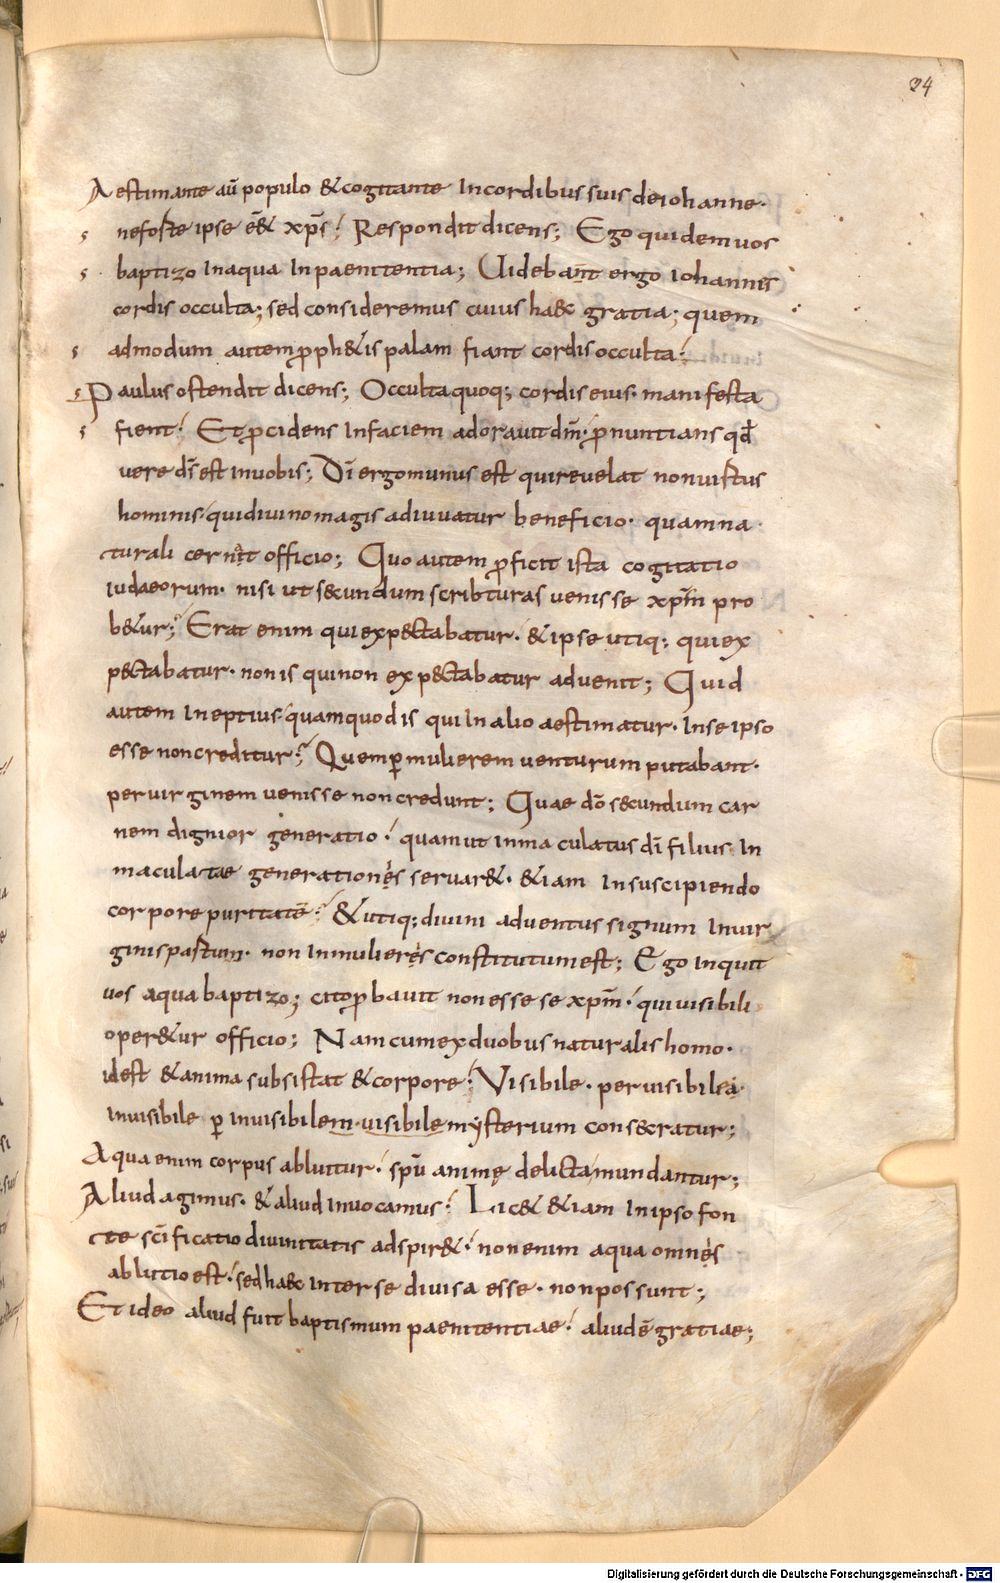 34
Aestimante aū populo & cogitante Incordibus suis deiohanne·
neforte ipse ē& xp̄s; Respondit dicens; Ego quidem vos
baptizo Inaqua Inpaenitentia; Uidebant ergo Iohannis
cordis occulta; sed consideremus cuius haec gratia; quem
admodum autem proph&is palam fiant cordis occulta;
Paulus ostendit dicens; Occulta quoq; cordis eius· manifesta
fient; Et procidens Infaciem adorauit dm̄· pronuntians qđ
uere ds̄ est Inuobis; Dī ergo munus est qui reuelat non uirtus
hominis quidiuino magis adiuuatur beneficio· quam na
turali cernit officio; Quo autem proficit ista cogitatio
iudaeorum· nisi ut secundum scribturas uenisse xpm̄ pro
b&ur; Erat enim qui exp&tabatur· & ipse utiq; qui ex
p&tabatur· non is qui non exp&tabatur aduenit; Quid
autem Ineptius quam quod is qui In alio aestimatur· Inse ipso
esse non creditur; Quem per mulierem uenturum putabant·
per uirginem uenisse non credunt; Quae dō secundum car
nem dignior generatio quam ut inmaculatus dī filius In
maculatae generationis seruar& &iam Insuscipiendo
corpore puritatē; & utiq; diuini aduentus signum Inuir
ginis partum· non Inmulieris constitutum est; Ego Inquit
uos aqua baptizo; cito probauit non esse se xpm̄· qui uisibili
oper&ur officio; Nam cum ex duobus naturalis homo·
idest & anima subsistat & corpore; Visibile· per uisibilia·
Inuisibile per inuisibilem· uisibile mysterium consecratur;
Aqua enim corpus abluitur· spū animę delicta mundantur;
Aliud agimus· & aliud Inuocamus; Lic& &iam Inipso fon
te scīficatio diuinitatis adspir&· non enim aqua omnis
ablutio est· sed haec inter se diuisa esse· non possunt;
Et ideo aliud fuit baptismum paenitentiae· aliud ē gratiae;
Digitalisierung gefördert durch die Deutsche Forschungsgemeinschaft - DFG